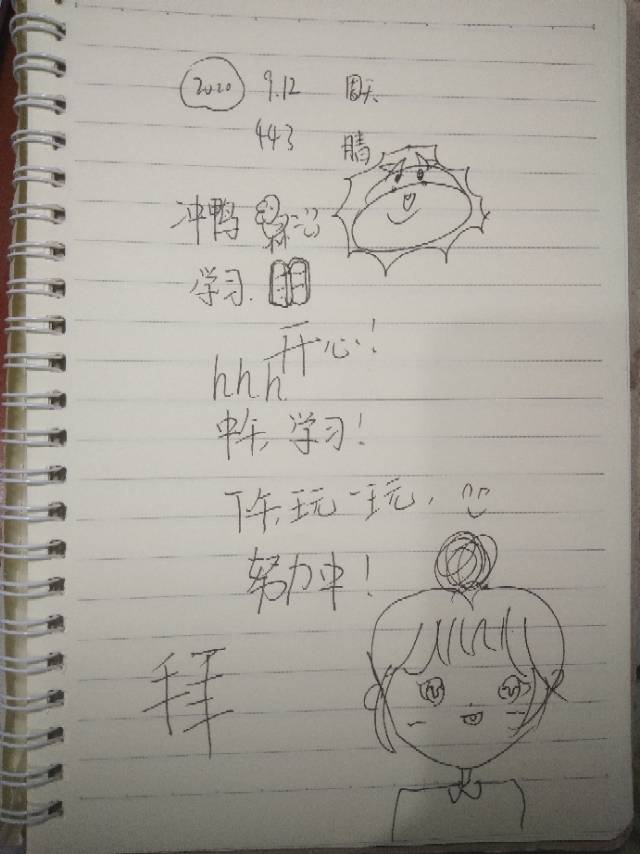 2020 9.12 周天
443 晴
冲鸭
学习.
开心!
hhh
中午,学习!
下午,玩一玩,
努力中!
拜